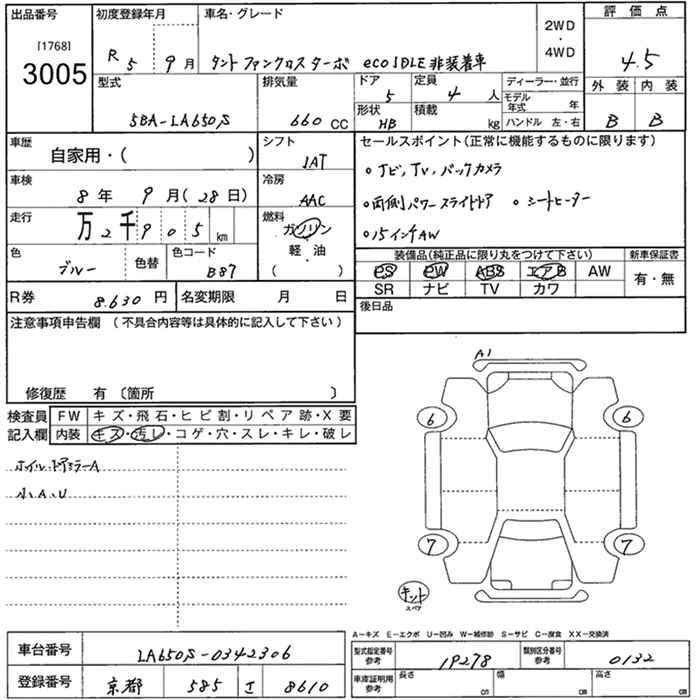 出品番号 初度登録年月 車名・グレード 2WD ・ 4WD 評価点
[1768] 3005
R5 9月 タント ファンクロス ターボ eco IDLE 非装着車 4.5
型式 排気量 ドア 定員 ディーラー・並行 外装 内装
5BA-LA650S 660 CC 5 4 人 モデル年式 年 B B
形状 積載 HB kg ハンドル 左・右
車歴 自家用・( ) シフト IAT セールスポイント(正常に機能するものに限ります)
車検 8年 9月(28日) 冷房 AAC ○ナビ, TV, バックカメラ
走行 万2千905km 燃料 ガソリン 軽・油 ・( ) ○両側パワースライドドア ○シートヒーター
○15インチAW
色 ブルー 色替 色コード B87 装備品(純正品に限り丸をつけて下さい) 新車保証書
PS PW ABS エアB AW 有・無
SR ナビ TV カワ
R券 8.630円 名変期限 月 日 後日品
注意事項申告欄 (不具合内容等は具体的に記入して下さい)
修復歴 有 〔箇所 〕
検査員 FW キズ・飛石・ヒビ割・リペア跡・X要
記入欄 内装 キズ・汚レ・コゲ・穴・スレ・キレ・破レ
ホイル.ドアミラーA
小A,U
A1
6 6
7 7
キット
スペア
A-キズ E-エクボ U-凹み W-補修跡 S-サビ C-腐食 XX-交換済
車台番号 LA650S-0342306 型式指定番号 参考 19278 類別区分番号 参考 0132
登録番号 京都 585 8610 車庫証明用 参考 長さ cm 幅 cm 高さ cm